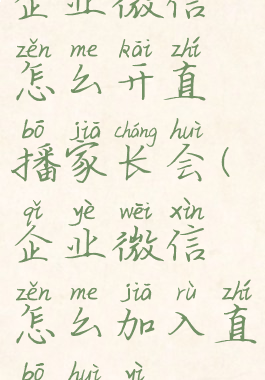 企业微信
zěn me kāi zhí
怎么开直
bō jiā cháng huì
播家长会(
qǐ yè wēi xìn
企业微信
zěn me jiā rù zhí
怎么加入直
bō huì yì